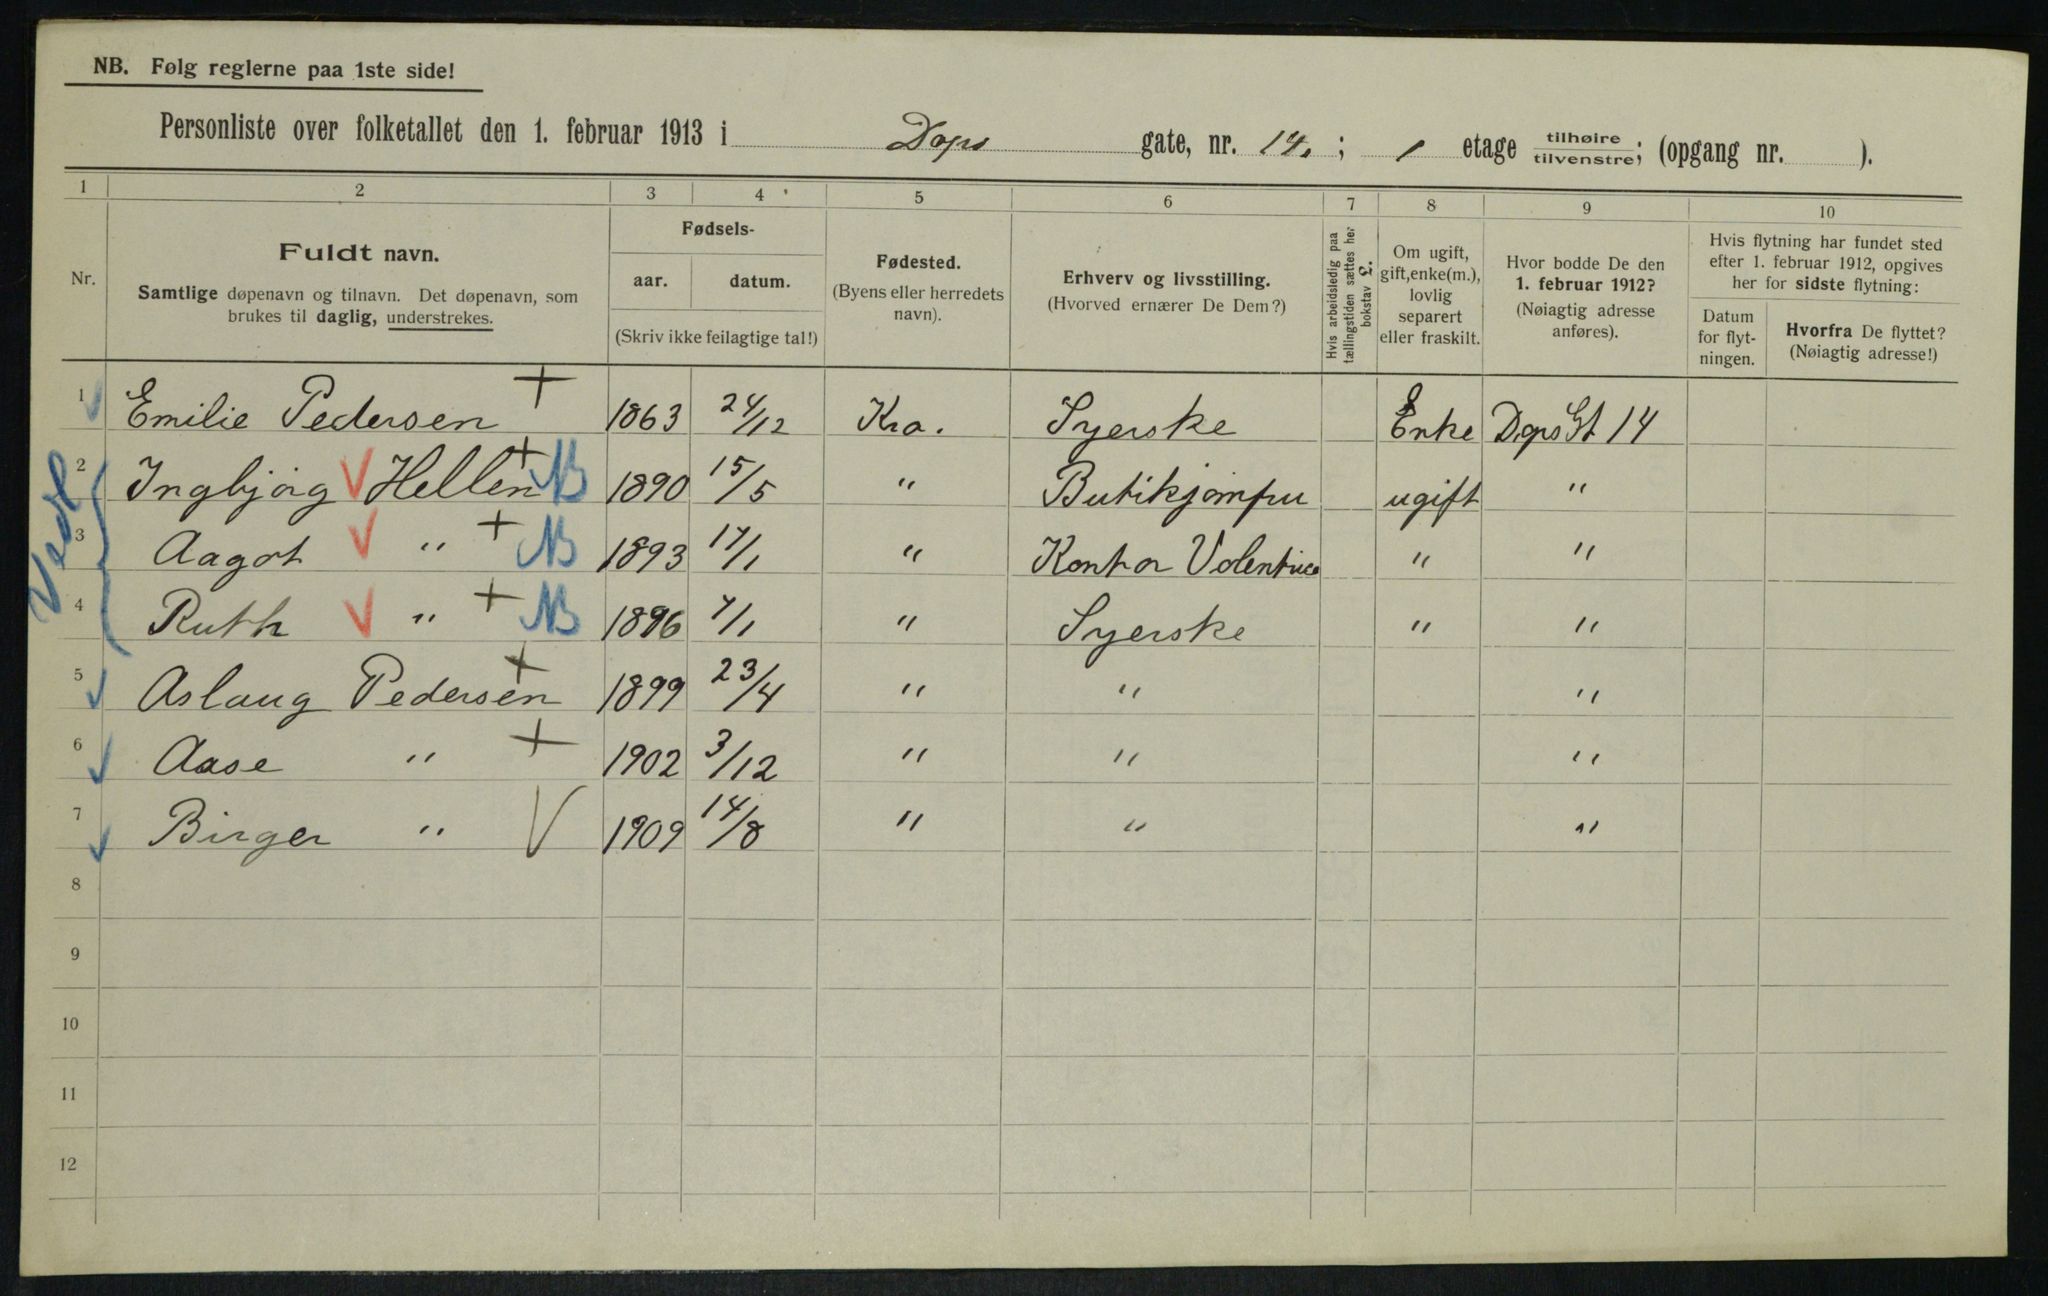 NB. Følg reglerne paa 1ste side!
Personliste over folketallet den 1. februar 1913 i Dops gate, nr. 14. ; 1 etage tilhøire tilvenstre; (opgang nr. ).
1 2 3 4 5 6 7 8 9 10
Nr.
Fuldt navn.
Samtlige døpenavn og tilnavn. Det døpenavn, som
brukes til daglig, understrekes.
Fødsels-
aar. datum.
(Skriv ikke feilagtige tal!)
Fødested.
(Byens eller herredets
navn).
Erhverv og livsstilling.
(Hvorved ernærer De Dem?)
Hvis arbeidsledig paa
tællingstiden sættes her
bokstav L.
Om ugift,
gift, enke(m.),
lovlig
separert
eller fraskilt.
Hvor bodde De den
1. februar 1912?
(Nøiagtig adresse
anføres).
Hvis flytning har fundet sted
efter 1. februar 1912, opgives
her for sidste flytning:
Datum
for flyt-
ningen.
Hvorfra De flyttet?
(Nøiagtig adresse!)
1 Emilie Pedersen + 1863 24/12 Kra. Syerske Enke Dops Gt 14
2 Ingbjörg V Hellen + NB 1890 15/5 " Butikjomfru ugift "
3 Aagot V " + NB 1893 17/1 " Kontor "  "
4 Ruth V " + NB 1896 7/1 " Syerske " "
5 Aslaug Pedersen + 1899 23/4 " " "
6 Aase " + 1902 3/12 " " "
7 Birger " V 1909 14/8 " " "
8
9
10
11
12